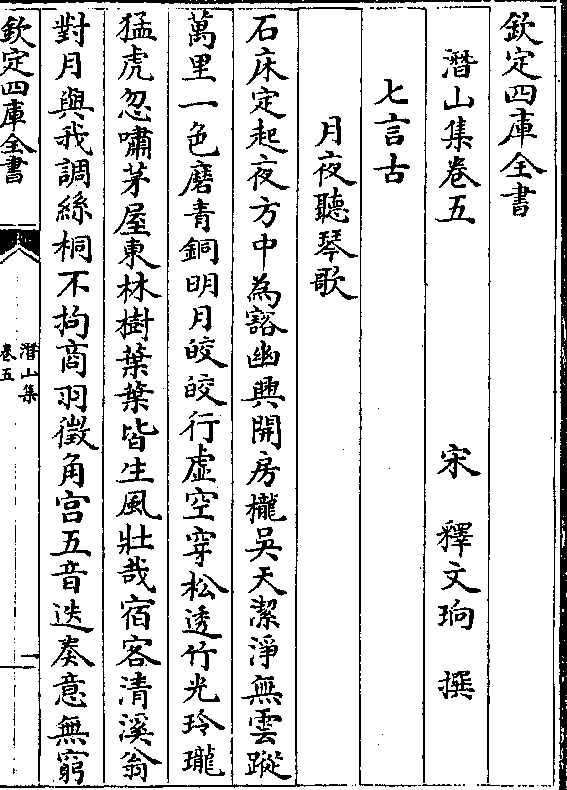 欽定四庫全書
潛山集卷五
宋 釋文珦 撰
七言古
月夜聽琴歌
石床定起夜方中為豁幽興開房櫳吳天潔淨無雲蹤
萬里一色磨青銅明月皎皎行虛空穿松透竹光玲瓏
猛虎忽嘯茅屋東林樹葉葉皆生風壯哉宿客清溪翁
對月與我調絲桐不拘商羽徵角宫五音迭奏意無窮
欽定四庫全書
潛山集
卷五
一